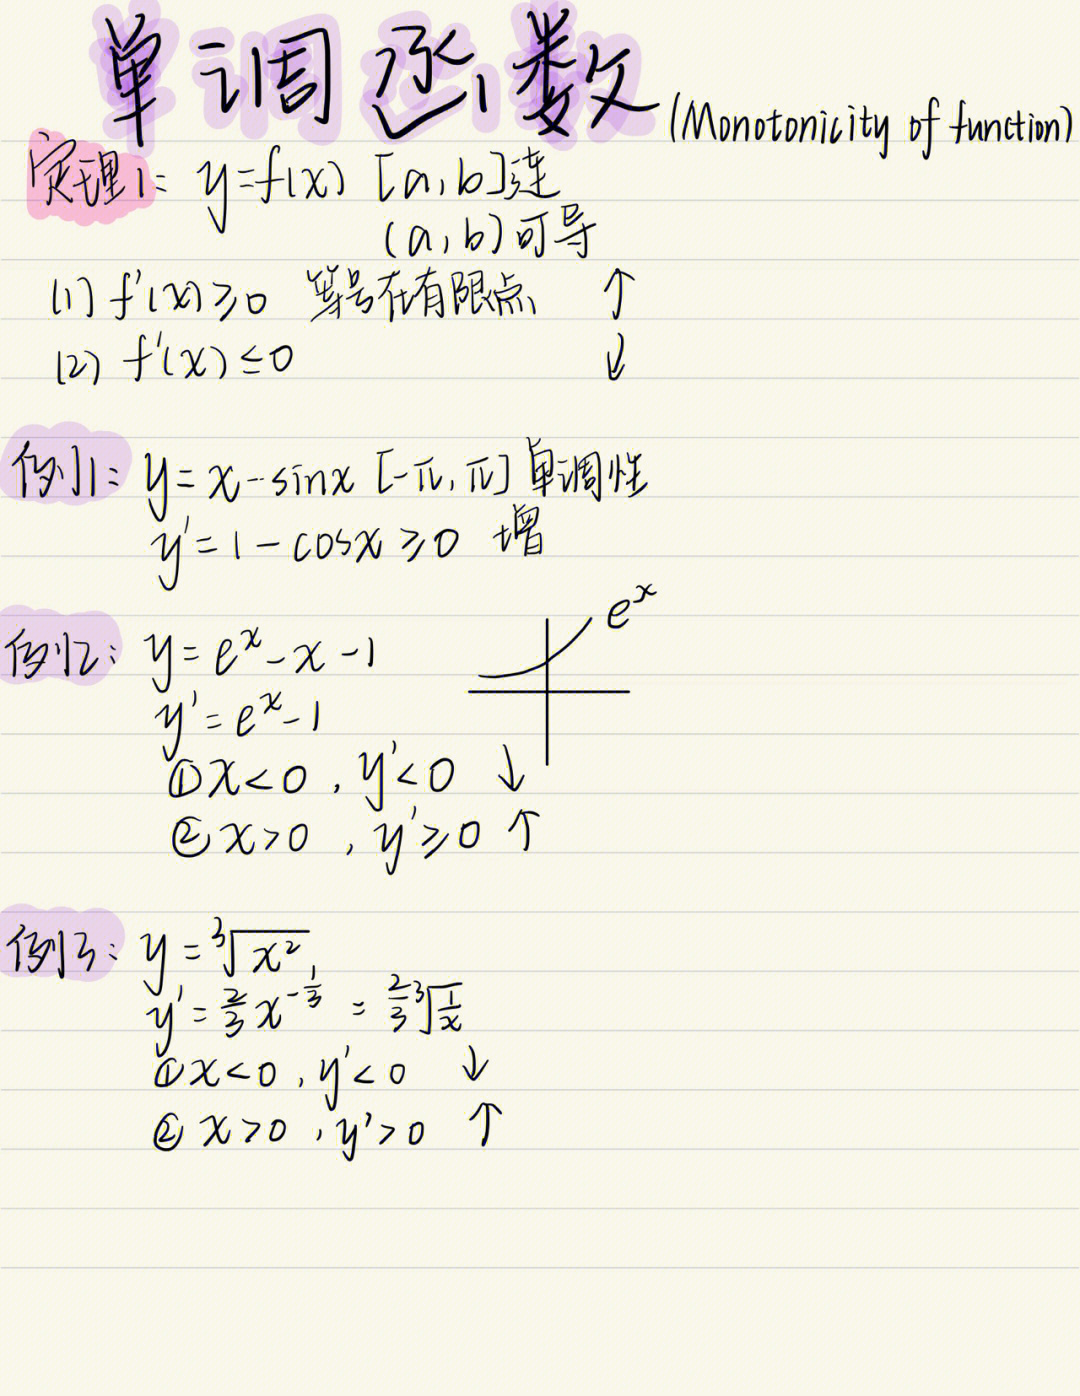 单调函数 (Monotonicity of function)
定理1: y=f(x) [a,b]连
(a,b)可导
(1) f'(x)≥0 等号在有限点 ↑
(2) f'(x)≤0 ↓
例1: y=x-sinx [-π,π] 单调性
y'=1-cosx≥0 增
例2: y=eˣ-x-1 eˣ
y'=eˣ-1
①x<0, y'<0 ↓
②x>0, y'≥0 ↑
例3: y=∛x²
y'=⅔x^-⅓ = ⅔∛(1/x)
①x<0, y'<0 ↓
②x>0, y'>0 ↑